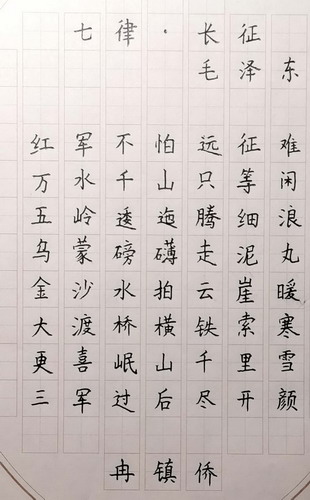 七律·长征
毛泽东
红军不怕远征难
万水千山只等闲
五岭逶迤腾细浪
乌蒙磅礴走泥丸
金沙水拍云崖暖
大渡桥横铁索寒
更喜岷山千里雪
三军过后尽开颜
冉镇侨